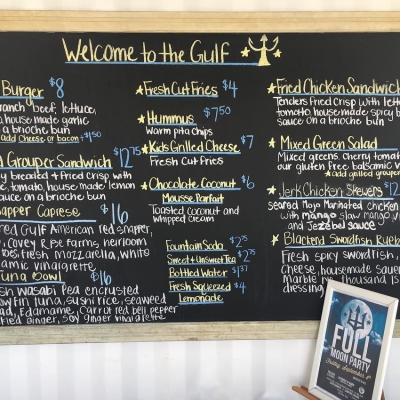 Welcome to the Gulf
Burger $8
ranch beef, lettuce,
, house made garlic
a brioche bun
add Cheese or bacon +$1.50
Grouper Sandwich $12.75
breaded + Fried crisp with
e, tomato, house made lemon
on a brioche bun
apper Caprese $16
red Gulf American red snapper,
Covey Rise Farms, heirloom
toes, fresh mozzarella, white
amic vinaigrette
Tuna Bowl $16
sh wasabi Pea encrusted
owfin tuna, sushi rice, seaweed
ad, Edamame, Carrot red bell pepper
ckled ginger, soy ginger vinaigrette
Fresh Cut Fries $4
Hummus $7.50
Warm pita Chips
Kids Grilled Cheese $7
Fresh Cut Fries
Chocolate Coconut $6
Mousse Parfait
Toasted coconut and
Whipped cream
Fountain Soda $2.75
Sweet + Unsweet Tea $2.75
Bottled Water $1.37
Fresh Squeezed $4
Lemonade
Fried Chicken Sandwich
Tenders Fried Crisp with lett
tomato, house made spicy
sauce on a brioche bun
Mixed Green Salad
Mixed greens, Cherry tomato
our gluten free balsamic v
add grilled grouper
Jerk Chicken Skewers $12
Seared Mojo Marinated chicken
with mango slaw mango vi
and Jezebel sauce
Blackend Swordfish Rueb
Fresh spicy swordfish,
Cheese, house made sauer
Marble rye thousand is
dres
FULL
MOON PARTY